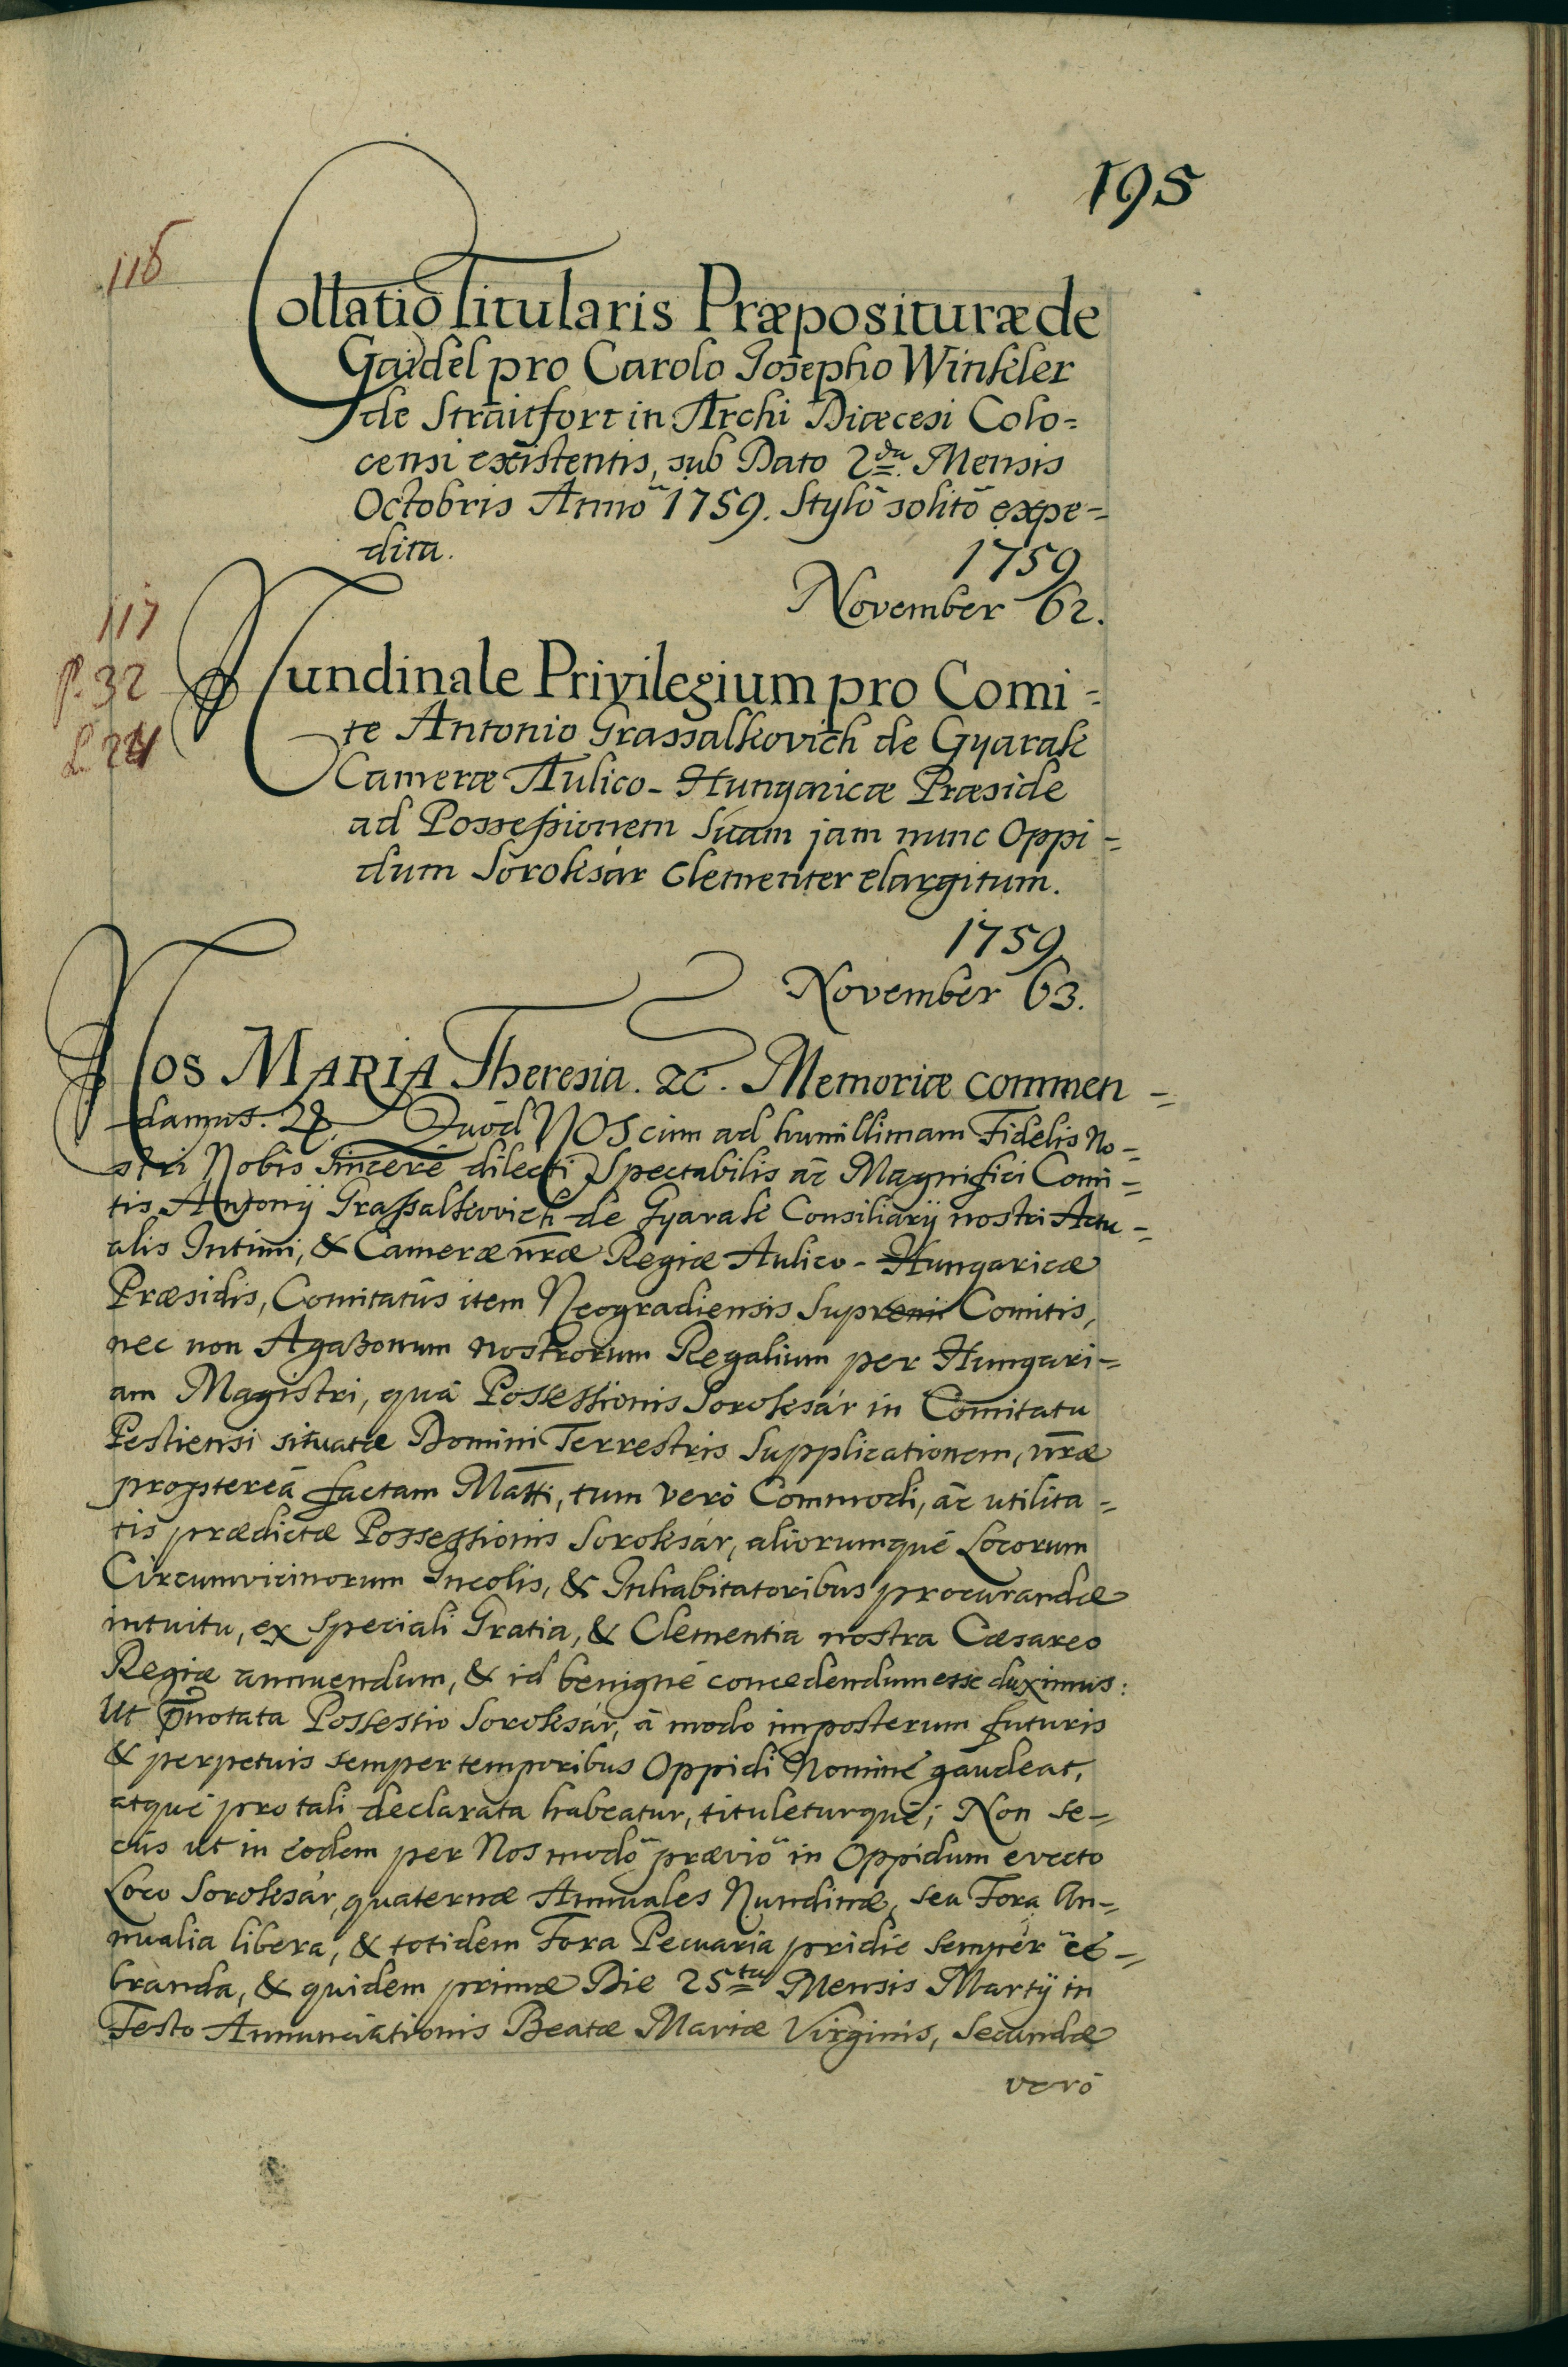 195
116
Collatio Titularis Præposituræ de
Gaidel pro Carolo Josepho Winkler
de Straitfort in Archi Diœcesi Colo=
censi existentis, sub Dato 2da Mensis
Octobris Annō 1759. Stylō solitō expe=
dita.
1759
November 62.
117
p. 32
L 24
Nundinale Privilegium pro Comi=
te Antonio Grassalkovich de Gyarak
Cameræ Aulico-Hungaricæ Præside
ad Possessionem Suam jam nunc Oppi=
dum Soroksár Clementer elargitum.
1759
November 63.
Nos MARIA Theresia. &c. Memoriæ commen=
damus. &c. Quòd NOS cùm ad humillimam Fidelis No=
stri, Nobis Sincerè dilecti Spectabilis ac Magnifici Comi=
tis Antonij Grassalkovich de Gyarak Consiliarij nostri Actu=
alis Intimi, & Cameræ nr̄æ Regiæ Aulico-Hungaricæ
Præsidis, Comitatûs item Neogradiensis Supremi Comitis,
nec non Agazonum nostrorum Regalium per Hungari=
am Magistri, quà Possessionis Soroksár in Comitatu
Pestiensi situatæ Domini Terrestris Supplicationem, nr̄æ
proptereà factam Matti, tum verò Commodi, ac utilita=
tis prædictæ Possessionis Soroksár, aliorumquè Locorum
Circumvicinorum Incolis, & Inhabitatoribus procurandæ
intuitu, ex Speciali Gratia, & Clementia nostra Cæsareo
Regiæ annuendum, & id benignè concedendum esse duximus:
Ut p̄notata Possessio Soroksár, à modo imposterum futuris
& perpetuis semper temporibus Oppidi Nominè gaudeat,
atquè pro tali declarata habeatur, tituleturquè; Non se=
cùs ut in eodem per Nos modō præviō in Oppidum evecto
Loco Soroksár, quaternæ Annuales Nundinæ, seu Fora An=
nualia libera, & totidem Fora Pecuaria pridie semper cē=
branda, & quidem primæ Die 25ta Mensis Martij in
Festo Annunciationis Beatæ Mariæ Virginis, Secundæ
verò